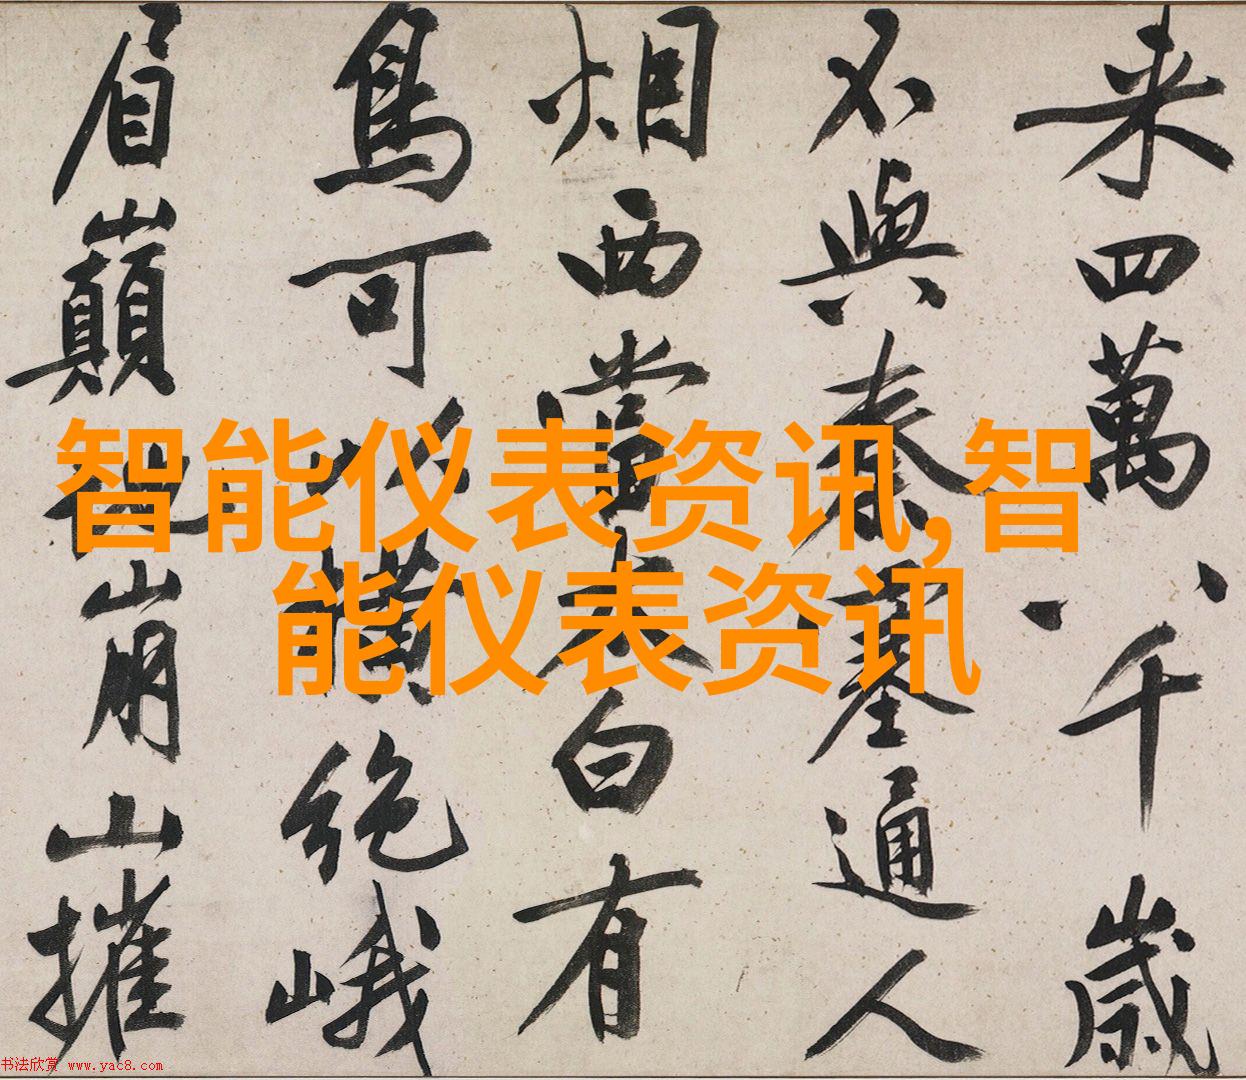 来四萬八千嵗
不與秦塞通人
烟西當太白有
鳥可以橫絶峨
眉巔地崩山摧
智能仪表资讯,智
能仪表资讯
书法欣赏 www.yac8.com